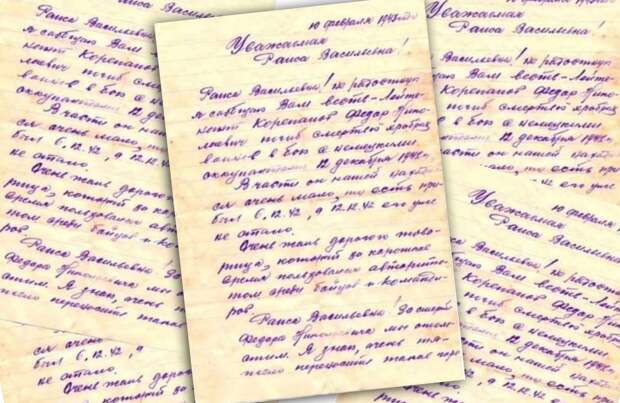 10 февраля 1943 года
Уважаемая
Раиса Васильевна!
Раиса Васильевна! Не радостную
я сообщаю Вам весть - Лейте-
нант Корепанов Федор
погиб смертью храбрых
в бою с немецкими
оккупантами 12 декабря 1942 г.
В части он нашей находил-
ся очень мало, то есть при-
был 6.12.42, а 12.12.42 его уже
не стало.
Очень жаль дорогого това-
рища, который за короткое
время пользовался авторите-
том среди бойцов и команди-
ров.
Раиса Васильевна! За смерть
Федора мы отом-
стим. Я знаю, очень тя-
жело переносить такое горе